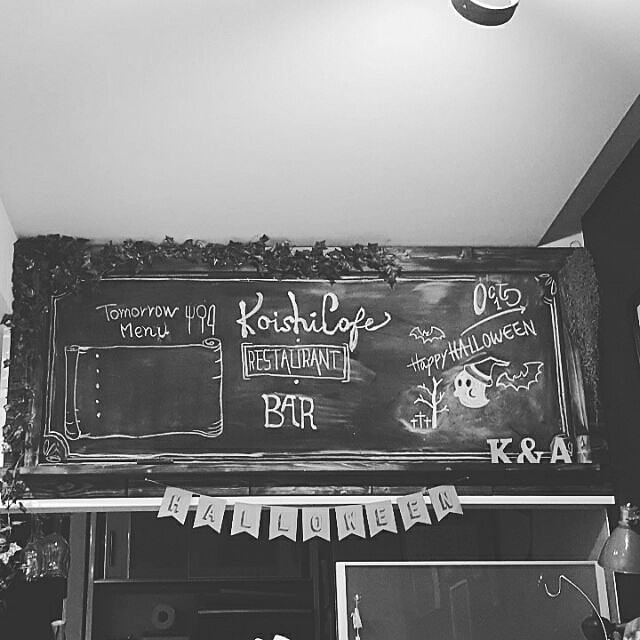 Tomorrow
Menu
KoishiCafe
RESTAURANT
BAR
Happy HALLOWEEN
K&A
HALLOWEEN